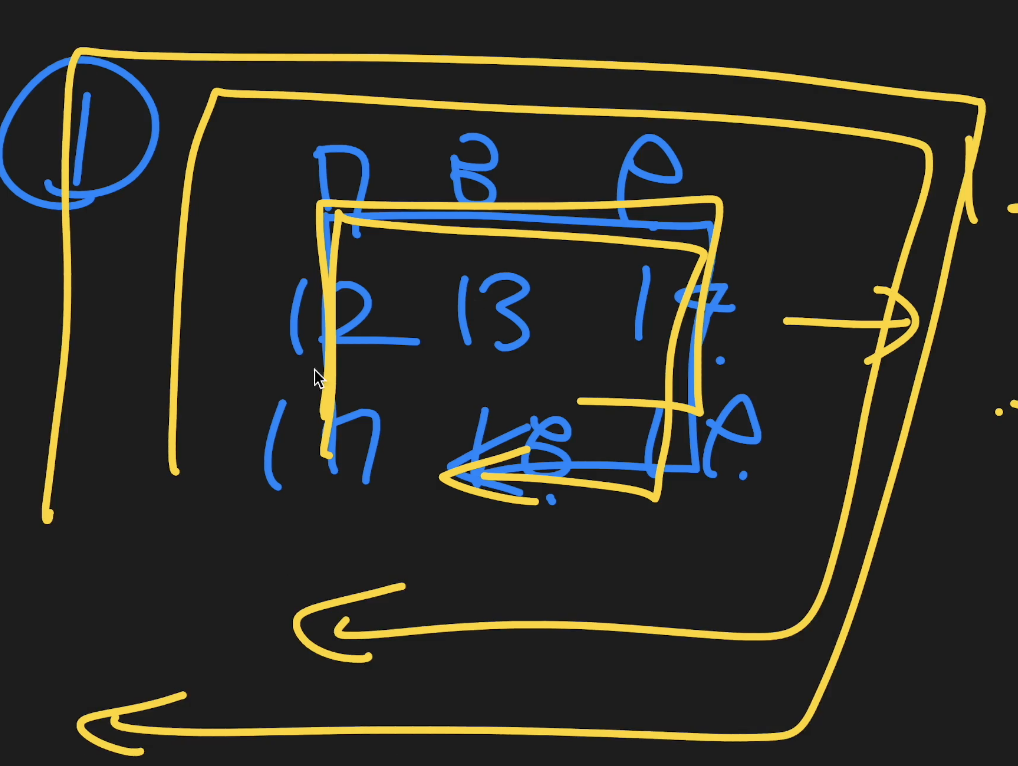 ①
7 8 9
12 13 14
17 18 19